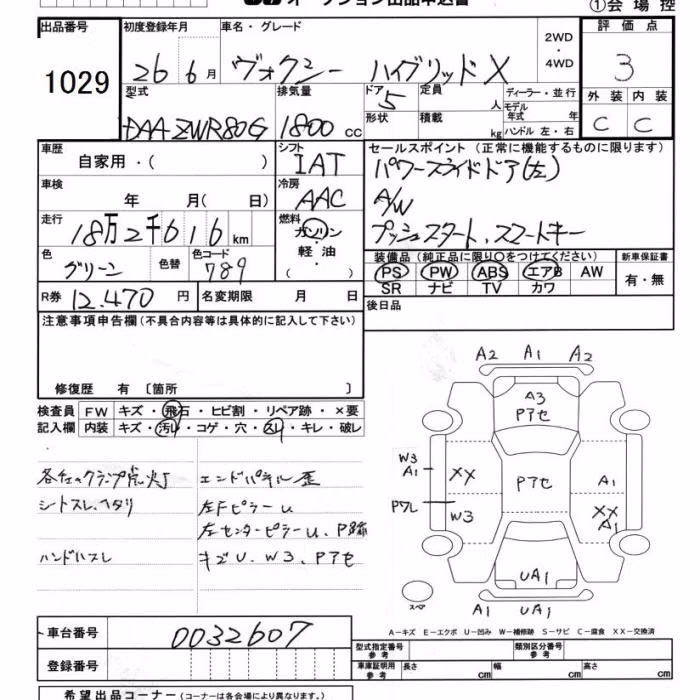 オークション出品申込書
①会場控
出品番号
1029
初度登録年月
26 6月
車名・グレード
ヴォクシー ハイブリッドX
2WD
・
4WD
評価点
3
外装 内装
C C
型式
DAA ZWR80G
排気量
1800 cc
ドア
5
定員
人
形状
積載
kg
ディーラー・並行
モデル
年式 年
ハンドル 左・右
車歴
自家用・( )
シフト
IAT
車検
年 月( 日)
冷房
AAC
走行
18万2千616 km
燃料
ガソリン
・
軽・油
( )
色
グリーン
色替
色コード
789
R券 12.470 円
名変期限 月 日
セールスポイント (正常に機能するものに限ります)
パワースライドドア(左)
A/W
プッシュスタート、スマートキー
装備品 (純正品に限り○をつけてください)
PS PW ABS エアB AW
SR ナビ TV カワ
新車保証書
有・無
後日品
注意事項申告欄 (不具合内容等は具体的に記入して下さい)
修復歴 有 〔箇所 〕
検査員
記入欄
FW キズ・飛石・ヒビ割・リペア跡・×要
内装 キズ・汚れ・コゲ・穴・スレ・キレ・破レ
シートスレ、ヘタリ
ハンドルスレ
エンドパネル歪
左FピラーU
左センターピラーU、P跡
キズU、W3、P7セ
A2 A1 A2
A3
P7セ
W3
A1
XX
P7セ
A1
P7L
W3
XX
A1
UA1
スペア
A1 UA1
A-キズ E-エクボ U-凹み W-補修跡 S-サビ C-腐食 XX-交換済
車台番号
0032607
登録番号
型式指定番号
参考
類別区分番号
参考
車庫証明用
参考
長さ cm
幅 cm
高さ cm
希望出品コーナー (コーナーは各会場により異なります。)